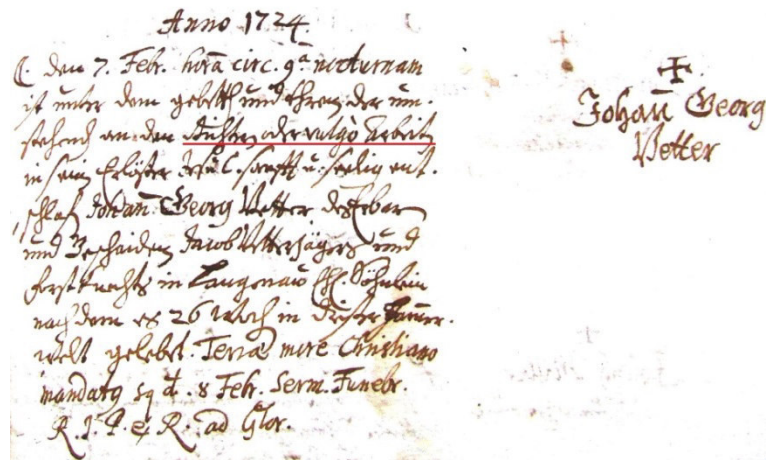 Anno 1724.
den 7. Febr. horâ circ. 9ª nocturnam
ist unter dem gebett und threnen der um-
stehend an den oder vulgò Arbeit
in sein Erlöser Jesu C. sanfft u. seelig ent-
schlaf Johañ Georg Vetter des Erbar
und Bescheiden Jacob Vetter Jägers und
forstknechts in Langenaw Ehl. Söhnlein
nach dem es 26 Woch in dieser Jam̄er-
welt gelebet. Terrae more Christiano
mandatq sq d. 8 Febr. Serm. Funebr.
R. I. P. & R. ad Glor.
Johañ Georg
Vetter